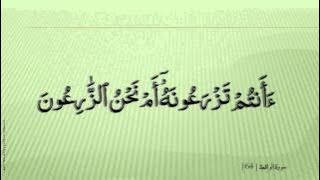 ءَأَنتُمْ تَزْرَعُونَهُۥٓ أَمْ نَحْنُ ٱلزَّٰرِعُونَ
سورة الواقعة |64|